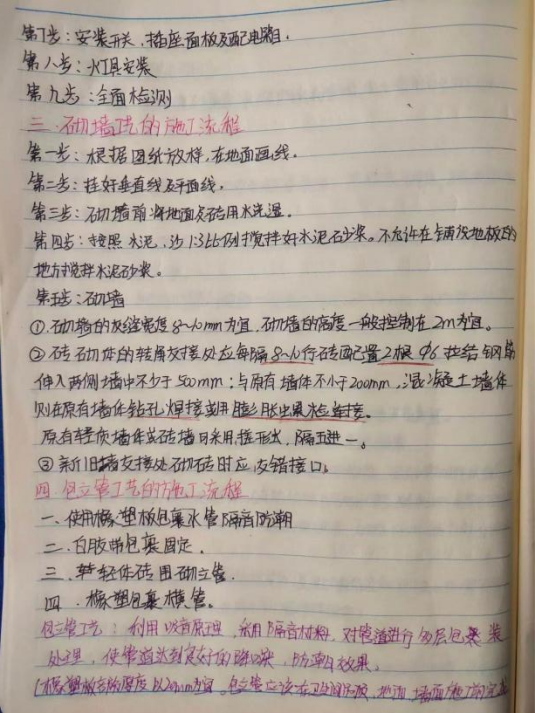 第7步：安装开关，插座面板及配电箱。
第八步：灯具安装
第九步：全面检测
三、砌墙工艺的施工流程
第一步：根据图纸放样，在地面画线。
第二步：挂好垂直线及平面线。
第三步：砌墙前将地面及砖用水浇湿。
第四步：按照水泥，沙1:3比例搅拌好水泥砂浆。不允许在铺设地板的
地方搅拌水泥砂浆。
第五步：砌墙
①砌墙的灰缝宽度8~10mm为宜，砌墙的高度一般控制在2m为宜。
②砖砌体的转角交接处应每隔8~10行砖配置2根Φ6拉结钢筋
伸入两侧墙中不少于500mm；与原有墙体不小于200mm，混凝土墙体
则在原有墙体钻孔焊接或用膨胀螺栓连接。
原有轻质墙体或砖墙可采用 隔五进一。
③新旧墙交接处砌砖时应交错接口。
四、包立管工艺的施工流程
一、使用橡塑板包裹水管隔音防潮
二、白胶带包裹固定。
三、轻体砖围砌立管。
四、橡塑包裹横管。
包立管工艺：利用吸音原理，采用隔音材料，对管道进行多层包裹装
处理，使管道达到良好的降噪，防潮效果。
厚度以20mm为宜。包立管应该在 地面，墙面施工前完成